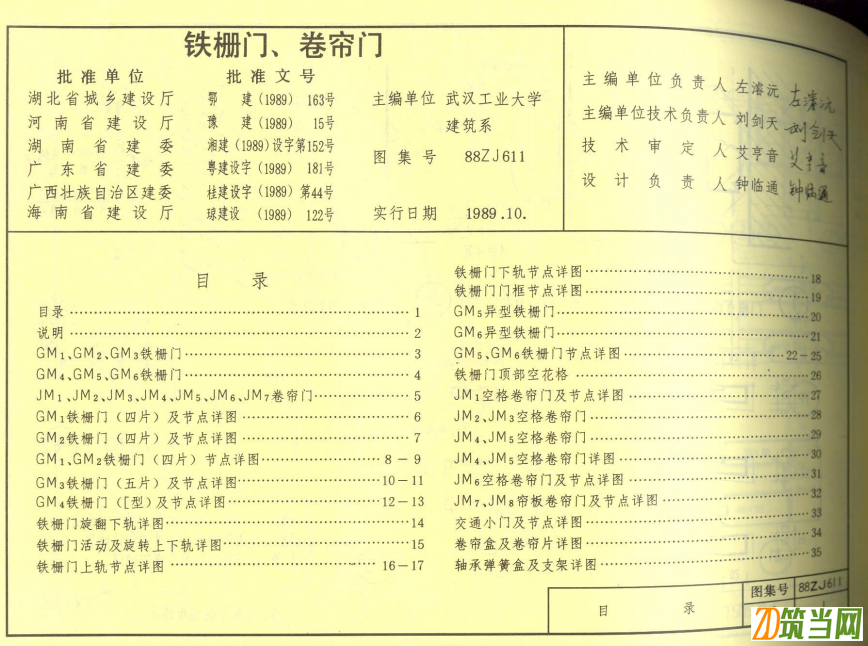 铁栅门、卷帘门
批准单位 批准文号
湖北省城乡建设厅 鄂 建(1989) 163号
河南省建设厅 豫 建(1989) 15号
湖南省建委 湘建(1989)设字第152号
广东省建委 粤建设字(1989) 181号
广西壮族自治区建委 桂建设字(1989)第44号
海南省建设厅 琼建设 (1989) 122号
主编单位 武汉工业大学
建筑系
图集号 88ZJ611
实行日期 1989.10.
主编单位负责人 左濬沅 左濬沅
主编单位技术负责人 刘剑天 刘剑天
技术审定人 艾亨音 艾亨音
设计负责人 钟临通 钟临通
目 录
目录……1
说明……2
GM₁、GM₂、GM₃铁栅门……3
GM₄、GM₅、GM₆铁栅门……4
JM₁、JM₂、JM₃、JM₄、JM₅、JM₆、JM₇卷帘门……5
GM₁铁栅门(四片)及节点详图……6
GM₂铁栅门(四片)及节点详图……7
GM₁、GM₂铁栅门(四片)节点详图……8-9
GM₃铁栅门(五片)及节点详图……10-11
GM₄铁栅门([型)及节点详图……12-13
铁栅门旋翻下轨详图……14
铁栅门活动及旋转上下轨详图……15
铁栅门上轨节点详图……16-17
铁栅门下轨节点详图……18
铁栅门门框节点详图……19
GM₅异型铁栅门……20
GM₆异型铁栅门……21
GM₅、GM₆铁栅门节点详图……22-25
铁栅门顶部空花格……26
JM₁空格卷帘门及节点详图……27
JM₂、JM₃空格卷帘门……28
JM₄、JM₅空格卷帘门……29
JM₄、JM₅空格卷帘门详图……30
JM₆空格卷帘门及节点详图……31
JM₇、JM₈帘板卷帘门及节点详图……32
交通小门及节点详图……33
卷帘盒及卷帘片详图……34
轴承弹簧盒及支架详图……35
目 录
图集号 88ZJ611
ZD筑当网